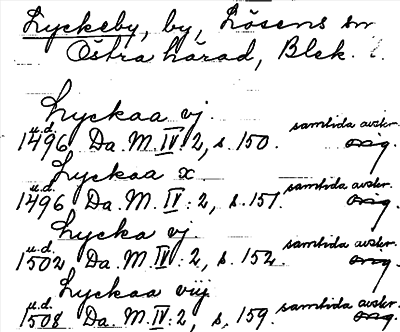 Lyckeby, by, Lösens sn
Östra härad, Blek. l.
Lyckaa vj.
u.d. samtida avskr.
1496 Da. M. IV: 2, s. 150. orig.
Lyckaa x.
u.d. samtida avskr.
1496 Da. M. IV: 2, s. 151. orig.
Lycka vj.
u.d. samtida avskr.
1502 Da. M. IV: 2, s. 152. orig.
Lyckaa viij
u.d. samtida avskr.
1508 Da. M. IV: 2, s. 159. orig.